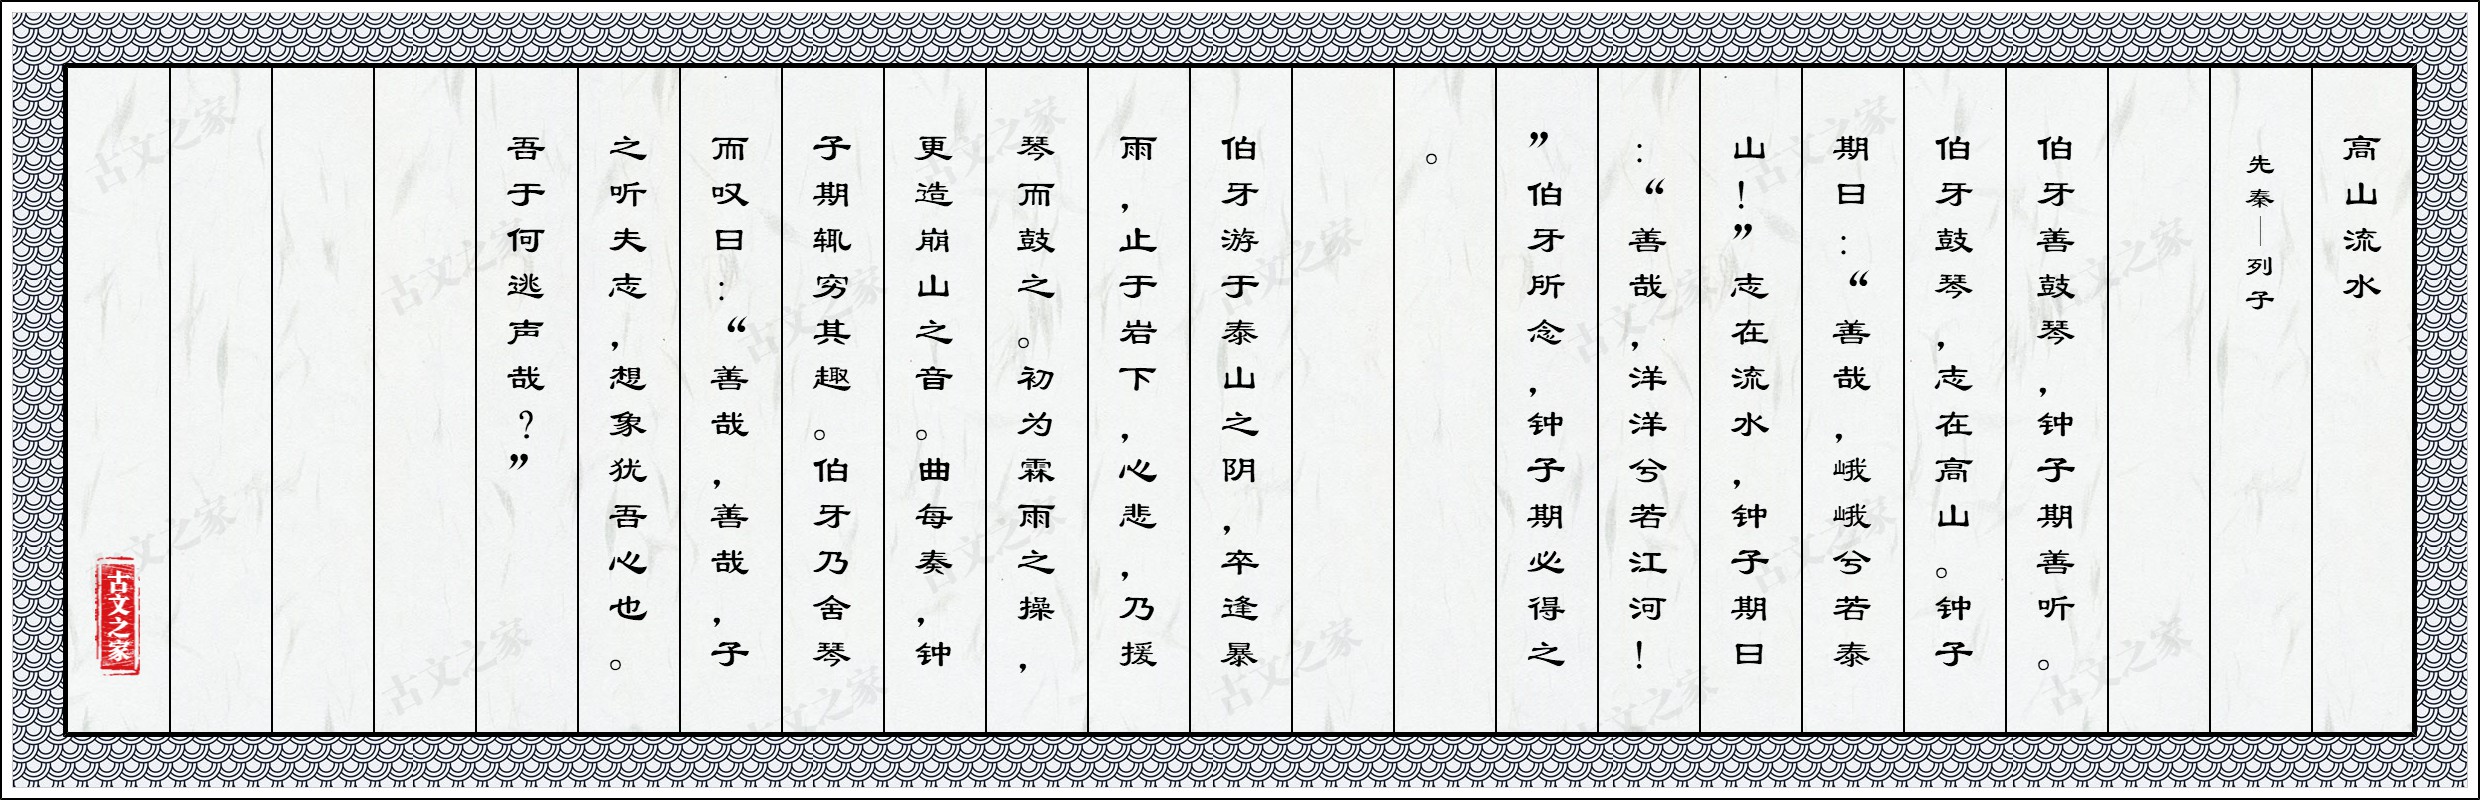 高山流水
先秦—列子
伯牙善鼓琴，钟子期善听。
伯牙鼓琴，志在高山。钟子
期曰：“善哉，峨峨兮若泰
山！”志在流水，钟子期曰
：“善哉，洋洋兮若江河！
”伯牙所念，钟子期必得之
。
伯牙游于泰山之阴，卒逢暴
雨，止于岩下，心悲，乃援
琴而鼓之。初为霖雨之操，
更造崩山之音。曲每奏，钟
子期辄穷其趣。伯牙乃舍琴
而叹曰：“善哉，善哉，子
之听夫志，想象犹吾心也。
吾于何逃声哉？”
古文之家